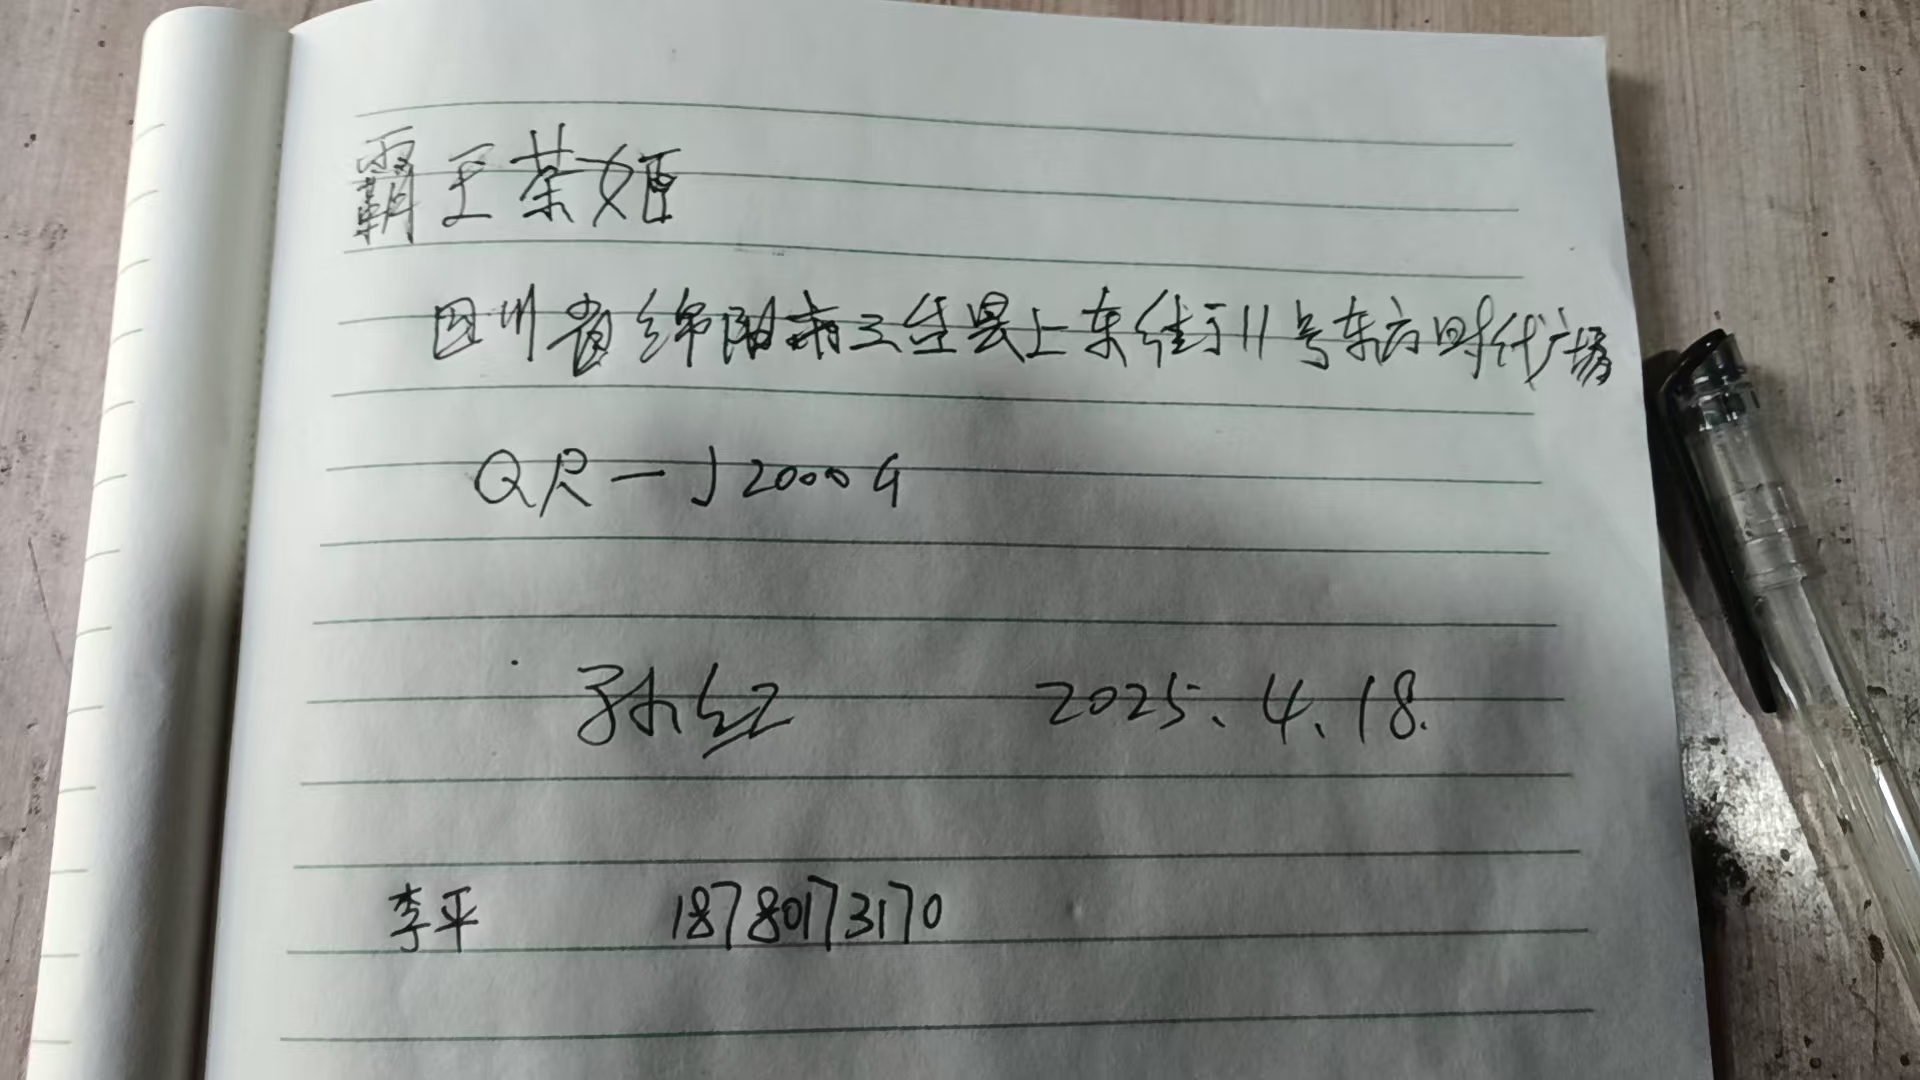 霸王茶姬
四川省绵阳市三台县上东街11号东方时代广场
QR-J2000G
孙红 2025.4.18.
李平 18780173170